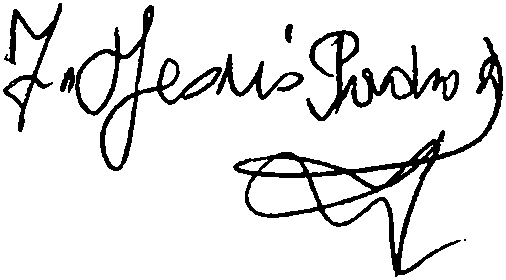 J. Jesús Prado